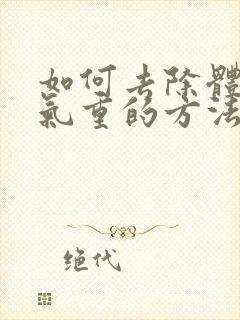 如何去除體
氣重的方法
绝代